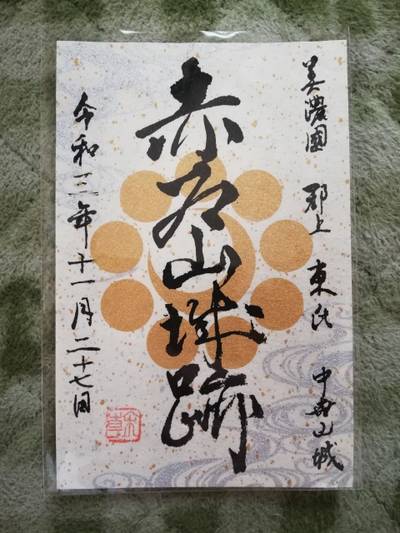 美濃國 郡上 東氏 中世山城
赤谷山城跡
令和三年十一月二十七日